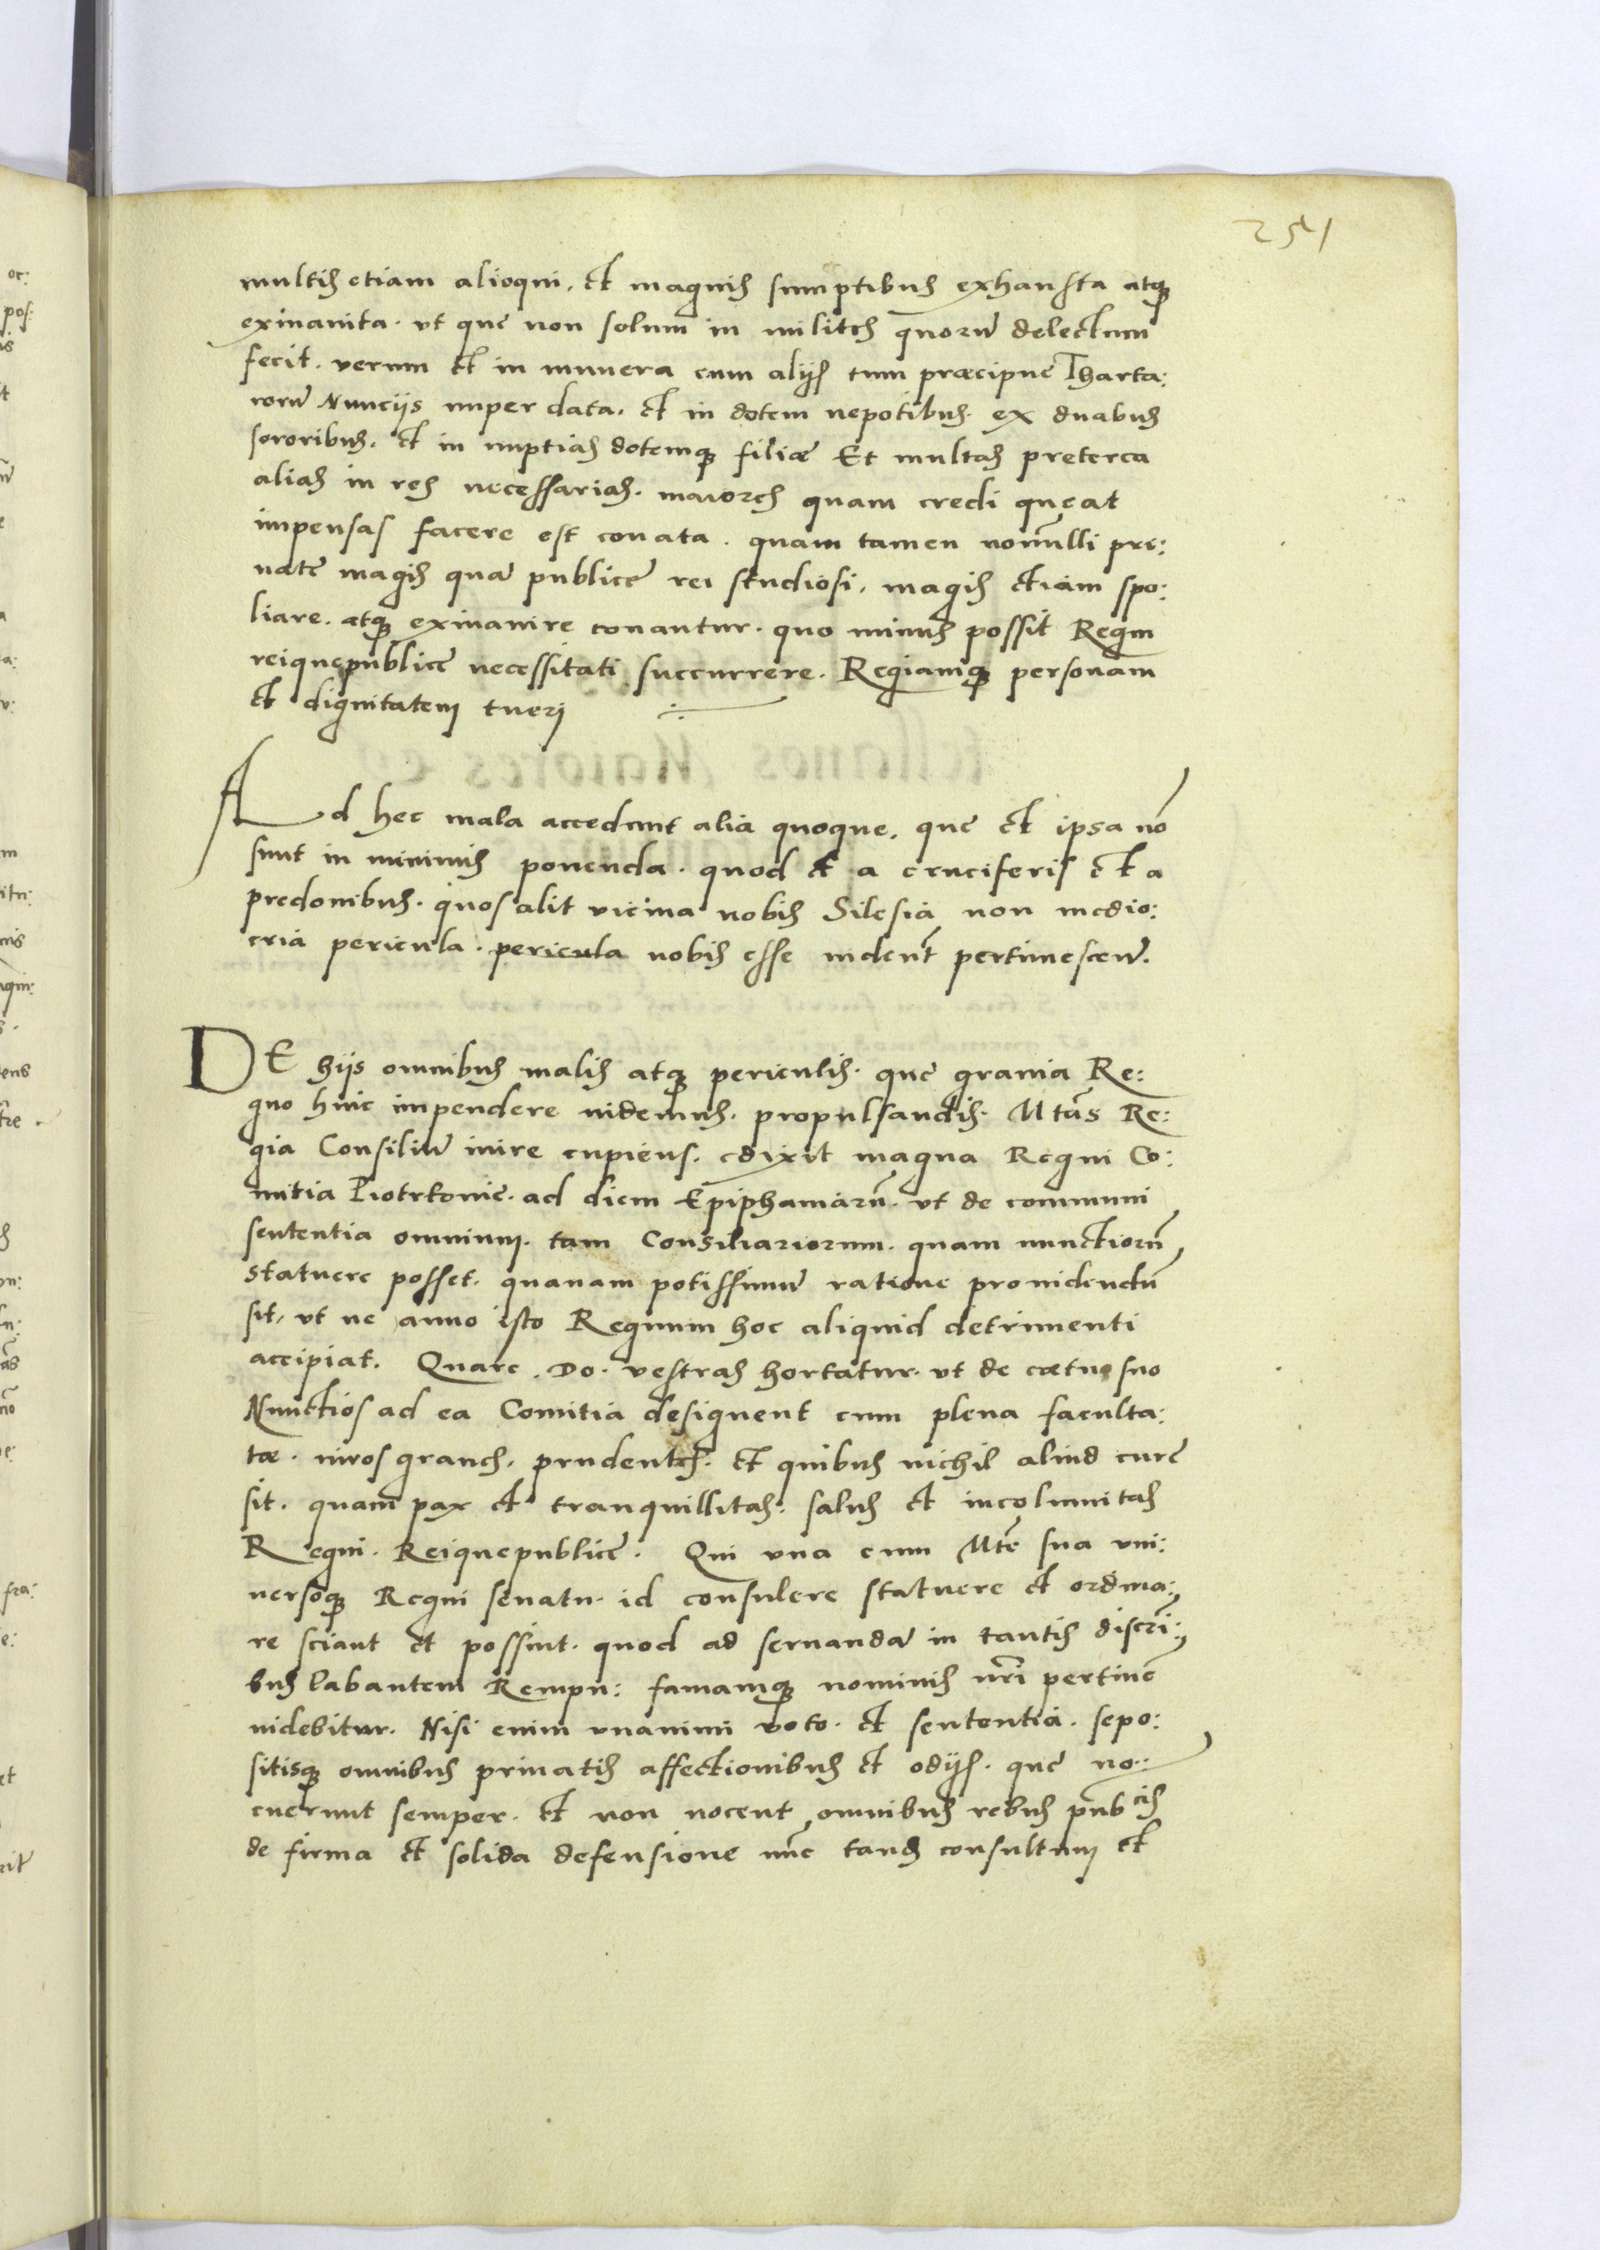 251
multis etiam alioqui, et magnis sumptibus exhausta atq;
exinanita. ut que non solum in milites quorũ delectum
fecit. verum et in munera cum alijs tum præcipue Tharta:
rorũ Nuncijs nuper data. et in dotem nepotibus. ex duabus
sororibus. et in nuptias dotemq; filiæ Et multas preterea
alias in res necessarias. maiores quam credi queat
impensas facere est conata. quam tamen nonnulli pri:
uatę magis quã publicę rei studiosi, magis etiam spo:
liare. atq; exinanire conantur. quo minus possit Regni
reiquepublicę necessitati succurrere. Regiamq; personam
et dignitatem tueri
Ad hec mala accedunt alia quoque, que et ipsa nõ
sunt in minimis ponenda. quod et a cruciferis et a
predonibus. quos alit vicina nobis Silesia non medio:
cria pericula. pericula nobis esse uident pertimescen̄.
DE hijs omnibus malis atq; periculis. que grauia Re:
gno huic impendere uidemus. propulsandis. Mtãs Re:
gia Consiliũ inire cupiens. edixit magna Regni Co:
mitia Piotrkouie. ad diem Epiphaniarũ. ut de communi
sententia omnium. tam Consiliariorum. quam nunctiorũ
statuere posset. quanam potissimũ ratione prouidendũ
sit, ut ne anno isto Regnum hoc aliquid detrimenti
accipiat. Quare. Do. vestras hortatur. ut de cœtu suo
Nunctios ad ea Comitia designent cum plena faculta:
tæ. uiros graues. prudentes. et quibus nichil aliud curę
sit. quam pax et tranquillitas. salus et incolumitas
Regni. Reiquepublicę. Qui una cum Mte sua uni:
uersoq; Regni senatu. id consulere statuere et ordina:
re sciant et possint. quod ad seruandã in tantis discri:
bus labantem Rempu: famamq; nominis nri pertinẽ
uidebitur. Nisi enim unanimi voto. et sententia. sepo:
sitisq; omnibus priuatis affectionibus et odijs. que no:
cuerunt semper. et non nocent omnibus rebus pubcis
de firma et solida defensione nũc tandẽ consultum et